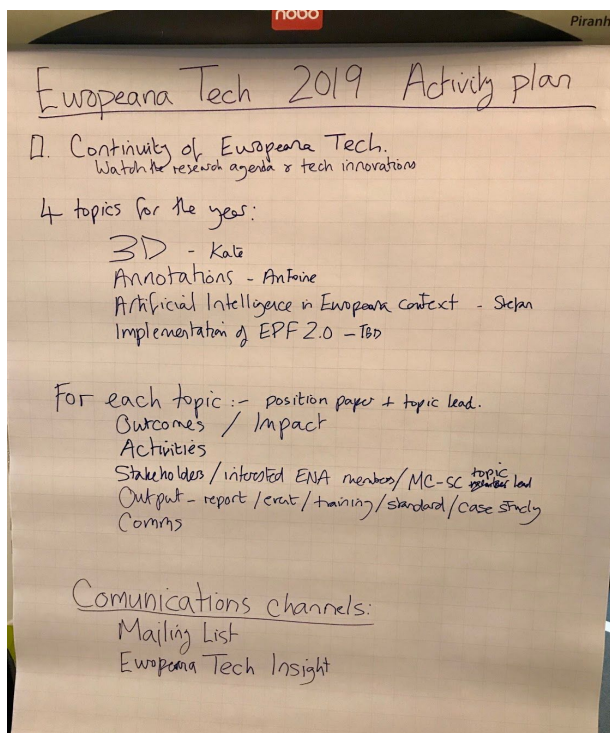 nobo
Piranh
Europeana Tech 2019 Activity plan
Continuity of Europeana Tech.
Watch the research agenda & tech innovations
4 topics for the year:
3D - Kate
Annotations - Antoine
Artificial Intelligence in Europeana context - Stefan
Implementation of EPF 2.0 - TBD
For each topic :- position paper + topic lead.
Outcomes / Impact
Activities
Stakeholders / interested ENA members / MC-SC topic lead
Output - report / event / training / standard / case study
Comms
Comunications channels:
Mailing List
Europeana Tech Insight